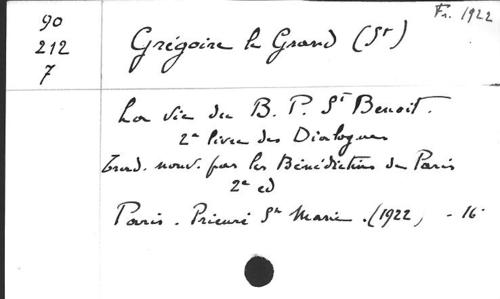 Fr. 1922
90
212
7
Grégoire le Grand (St)
La vie du B. P. St Benoit.
2e livre des Dialogues
Trad. nouv. par les Bénédictins de Paris
2e ed
Paris. Prieuré Ste Marie. (1922, - 16